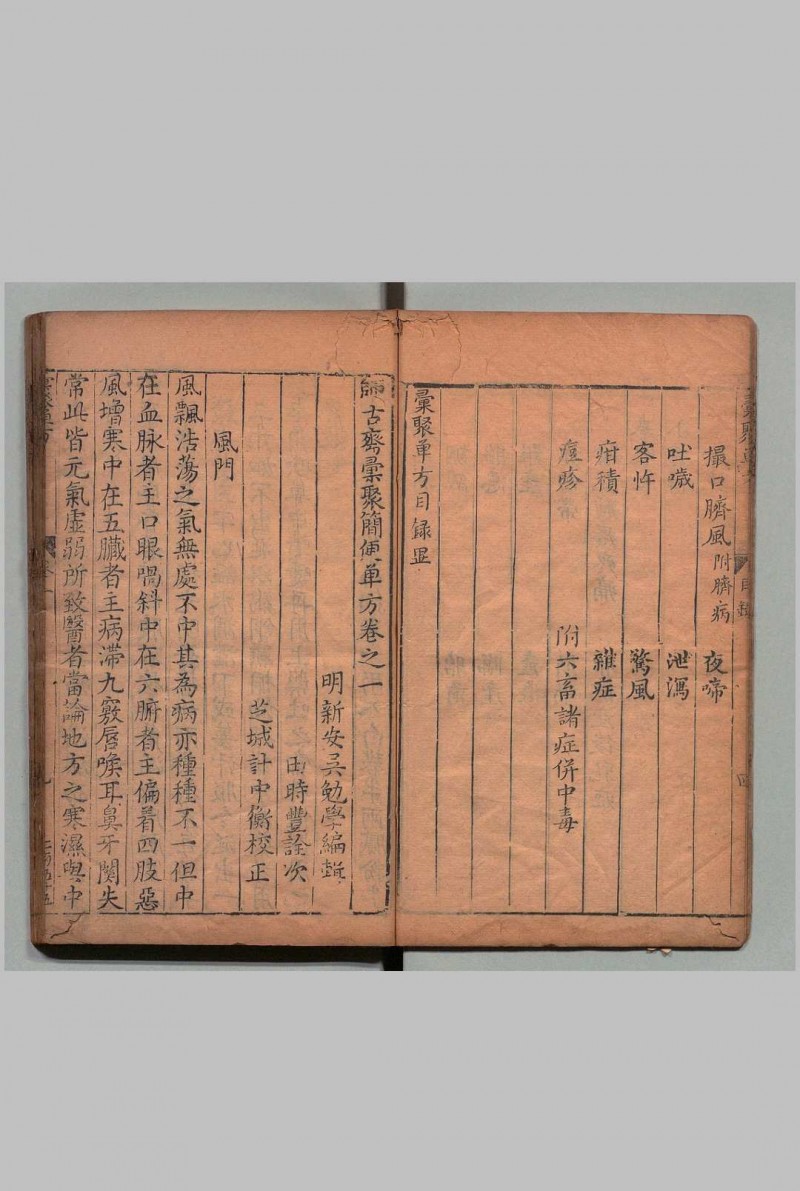 彙聚單方 目錄 四
撮口臍風附臍病 夜啼
吐噦 泄瀉
客忤 驚風
疳積 雜症
痘疹 附六畜諸症併中毒
彙聚單方目錄畢
師古齋彙聚簡便單方卷之一
明新安吳勉學編輯
由時豐詮次
芝城計中衡校正
風門
風飄浩蕩之氣無處不中其為病亦種種不一但中
在血脉者主口眼喎斜中在六腑者主偏着四肢惡
風墻寒中在五臟者主病滯九竅唇喉耳鼻牙関失
常此皆元氣虛弱所致醫者當論地方之寒濕與中